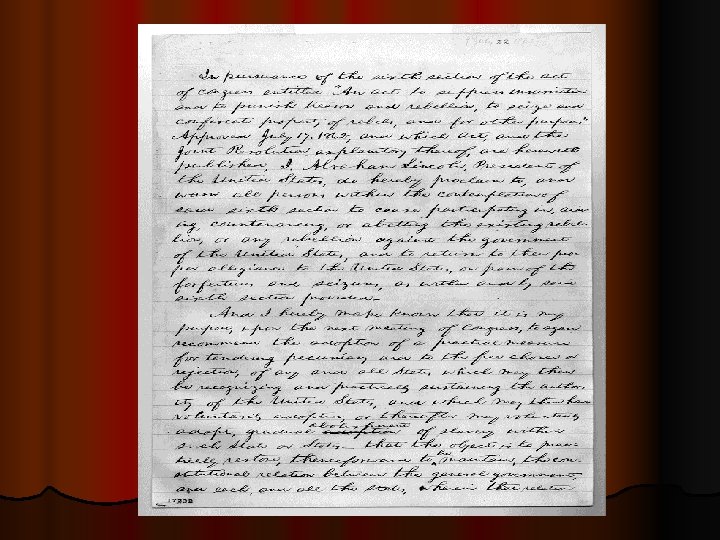 July 22
In pursuance of the sixth section of the act
of congress entitled "An act to suppress insurrection
and to punish treason and rebellion, to seize and
confiscate property of rebels, and for other purposes"
Approved July 17. 1862, and which act, and the
Joint Resolution explanatory thereof, are herewith
published, I, Abraham Lincoln, President of
the United States, do hereby proclaim to, and
warn all persons within the contemplation of
said sixth section to cease participating in, aid-
ing, countenancing, or abetting the existing rebel-
lion, or any rebellion against the government
of the United States, and to return to their pro-
per allegiance to the United States, on pain of the
forfeitures and seizures, as within and by said
sixth section provided—
And I hereby make known that it is my
purpose, upon the next meeting of Congress, to again
recommend the adoption of a practical measure
for tendering pecuniary aid to the free choice or
rejection, of any and all States which may then
be recognizing and practically sustaining the author-
ity of the United States, and which may then have
voluntarily adopted, or thereafter may voluntarily
adopt, gradual abolishment of slavery within
such State or States— that the object is to prac-
tically restore, thenceforward to be maintain, the con-
stitutional relation between the general government,
and each, and all the states, wherein that relation
17232